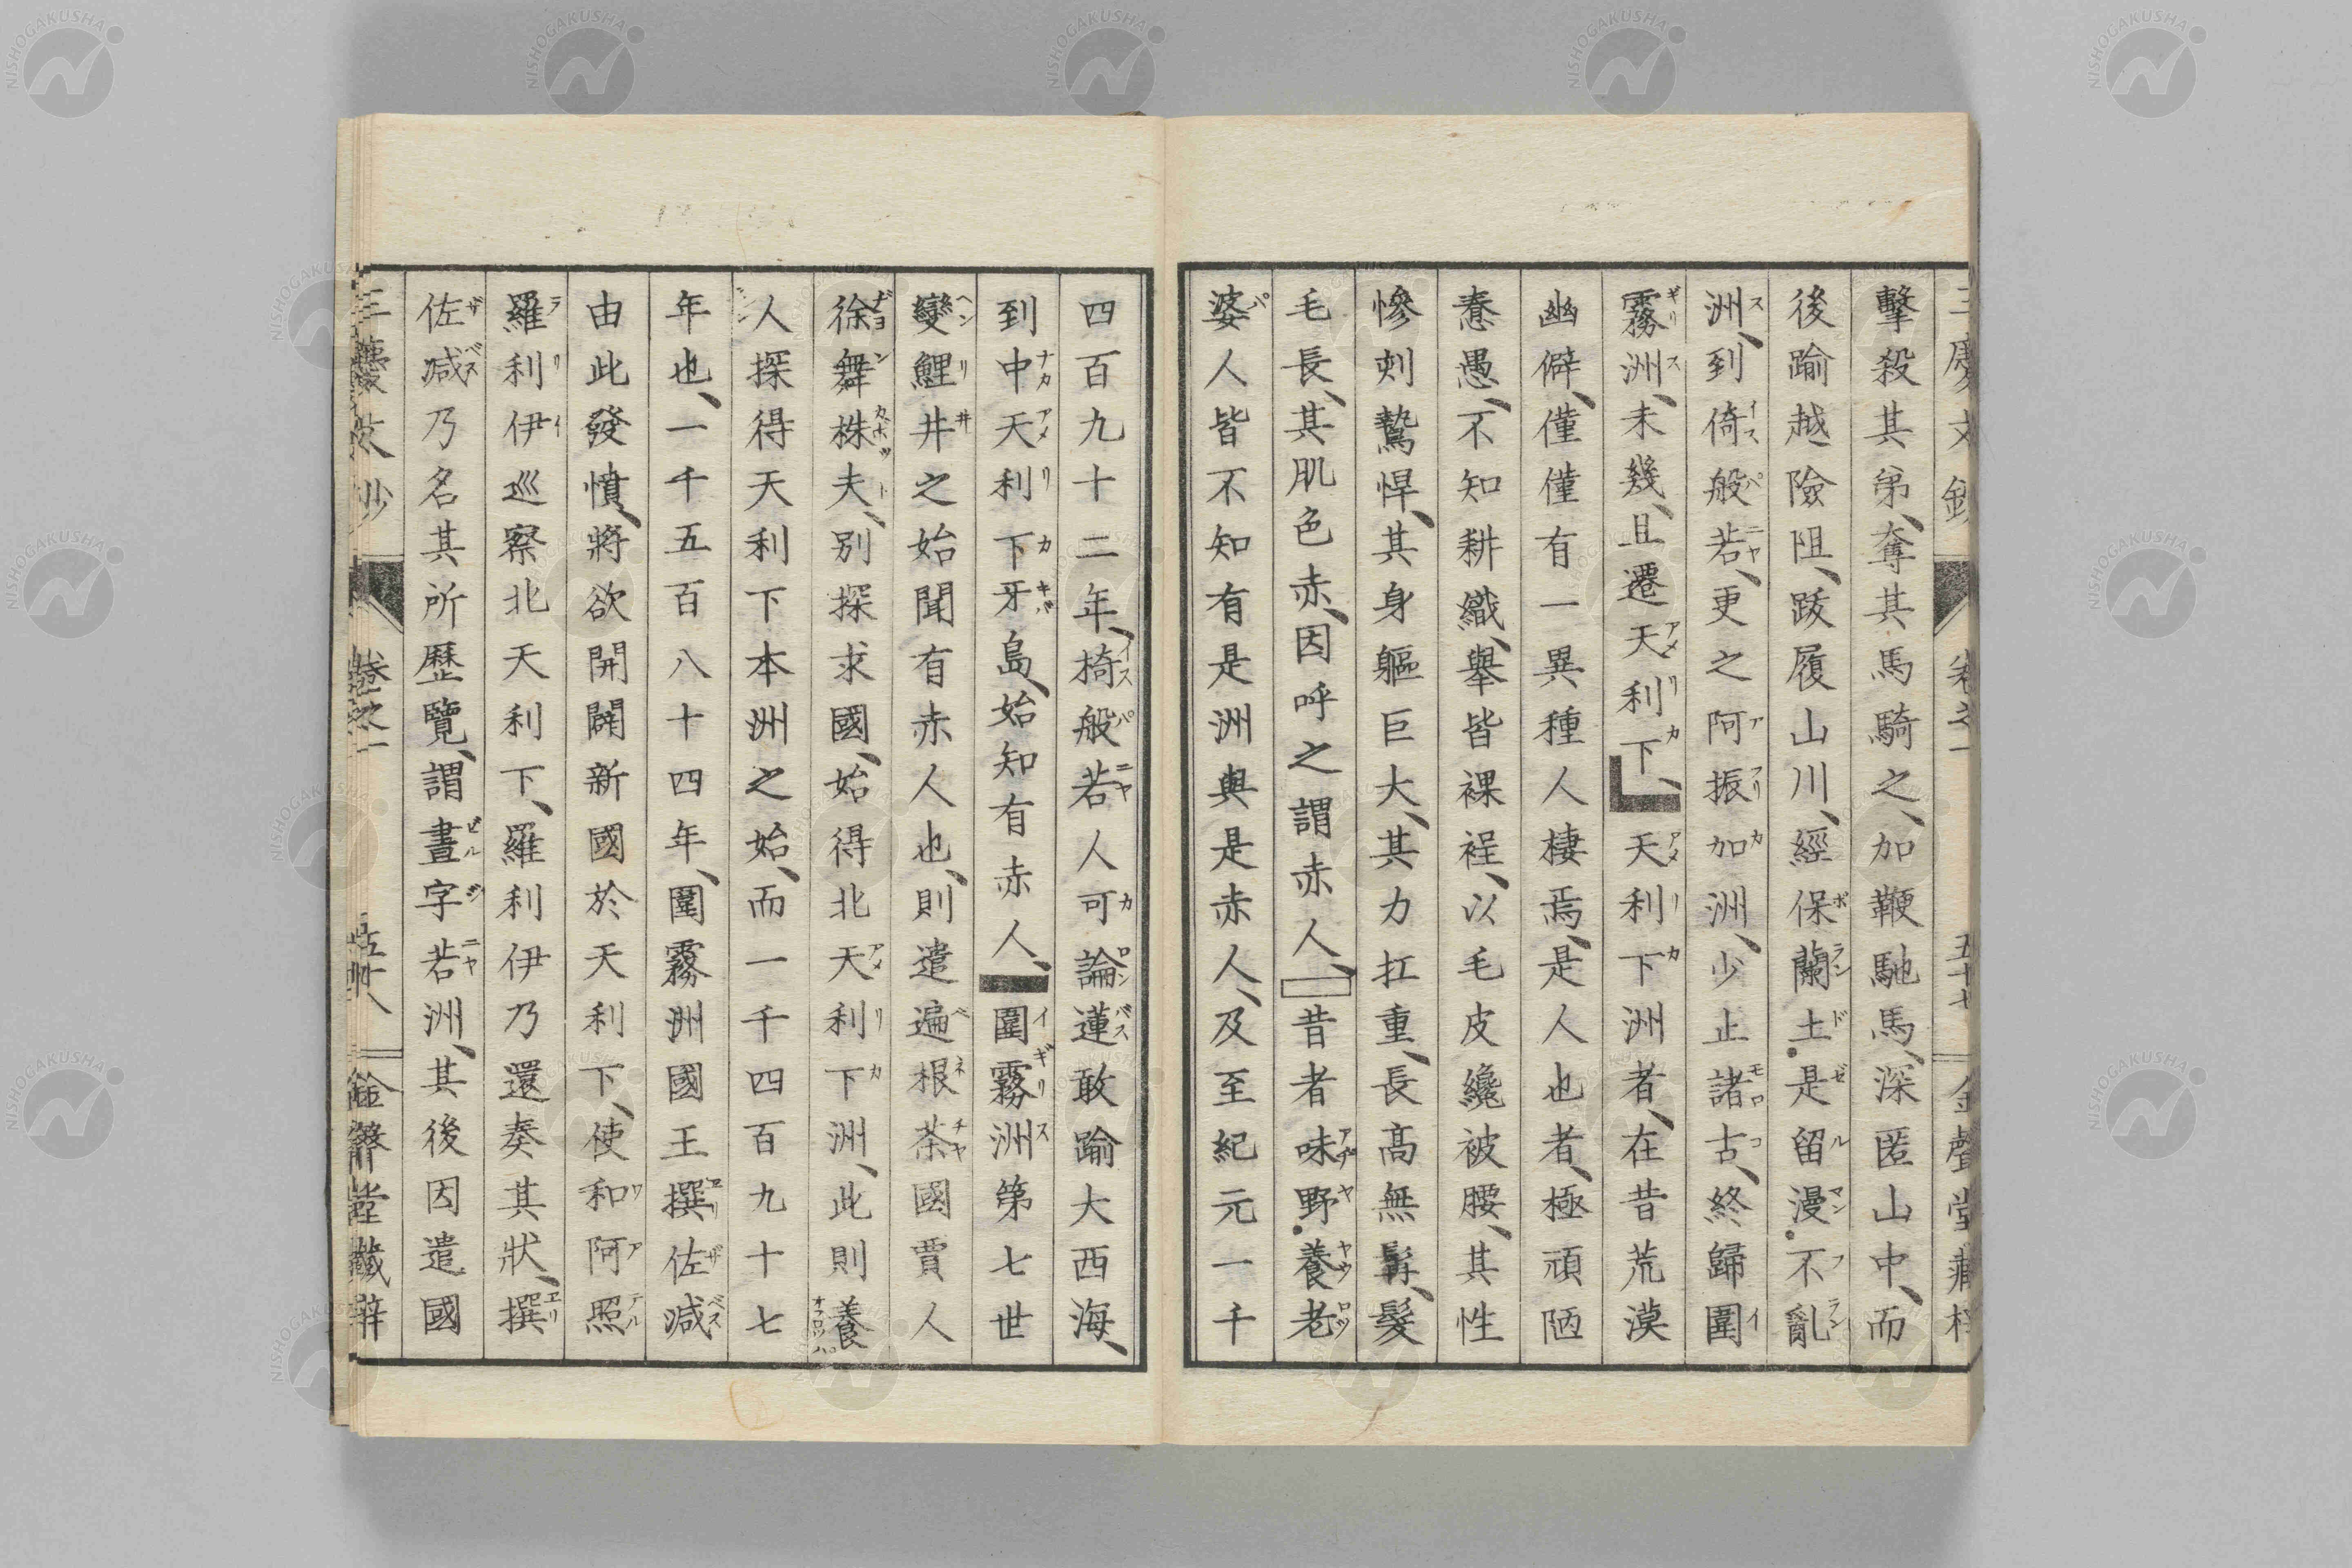 擊殺其弟、奪其馬騎之、加鞭馳馬、深匿山中、而
後踰越險阻、跋履山川、經保蘭土・是留漫・不亂
洲、到倚般若、更之阿振加洲、少止諸古、終歸圍
霧洲、未幾、且遷天利下、天利下洲者、在昔荒漠
幽僻、僅僅有一異種人棲焉、是人也者、極頑陋
惷愚、不知耕織、舉皆裸裎、以毛皮纔被腰、其性
慘刻鷙悍、其身軀巨大、其力扛重、長高無髯、髮
毛長、其肌色赤、因呼之謂赤人、昔者味野・養老
婆人皆不知有是洲與是赤人、及至紀元一千
四百九十二年、椅般若人可論蓮敢踰大西海、
到中天利下牙島、始知有赤人、圍霧洲第七世
變鯉井之始聞有赤人也、則遣遍根茶國賈人
徐舞株夫、別探求國、始得北天利下洲、此則養
人探得天利下本洲之始、而一千四百九十七
年也、一千五百八十四年、圍霧洲國王撰佐減
由此發憤、將欲開闢新國於天利下、使和阿照
羅利伊巡察北天利下、羅利伊乃還奏其狀、撰
佐減乃名其所歷覽、謂晝字若洲、其後因遣國
卷之一
NISHOGAKUSHA